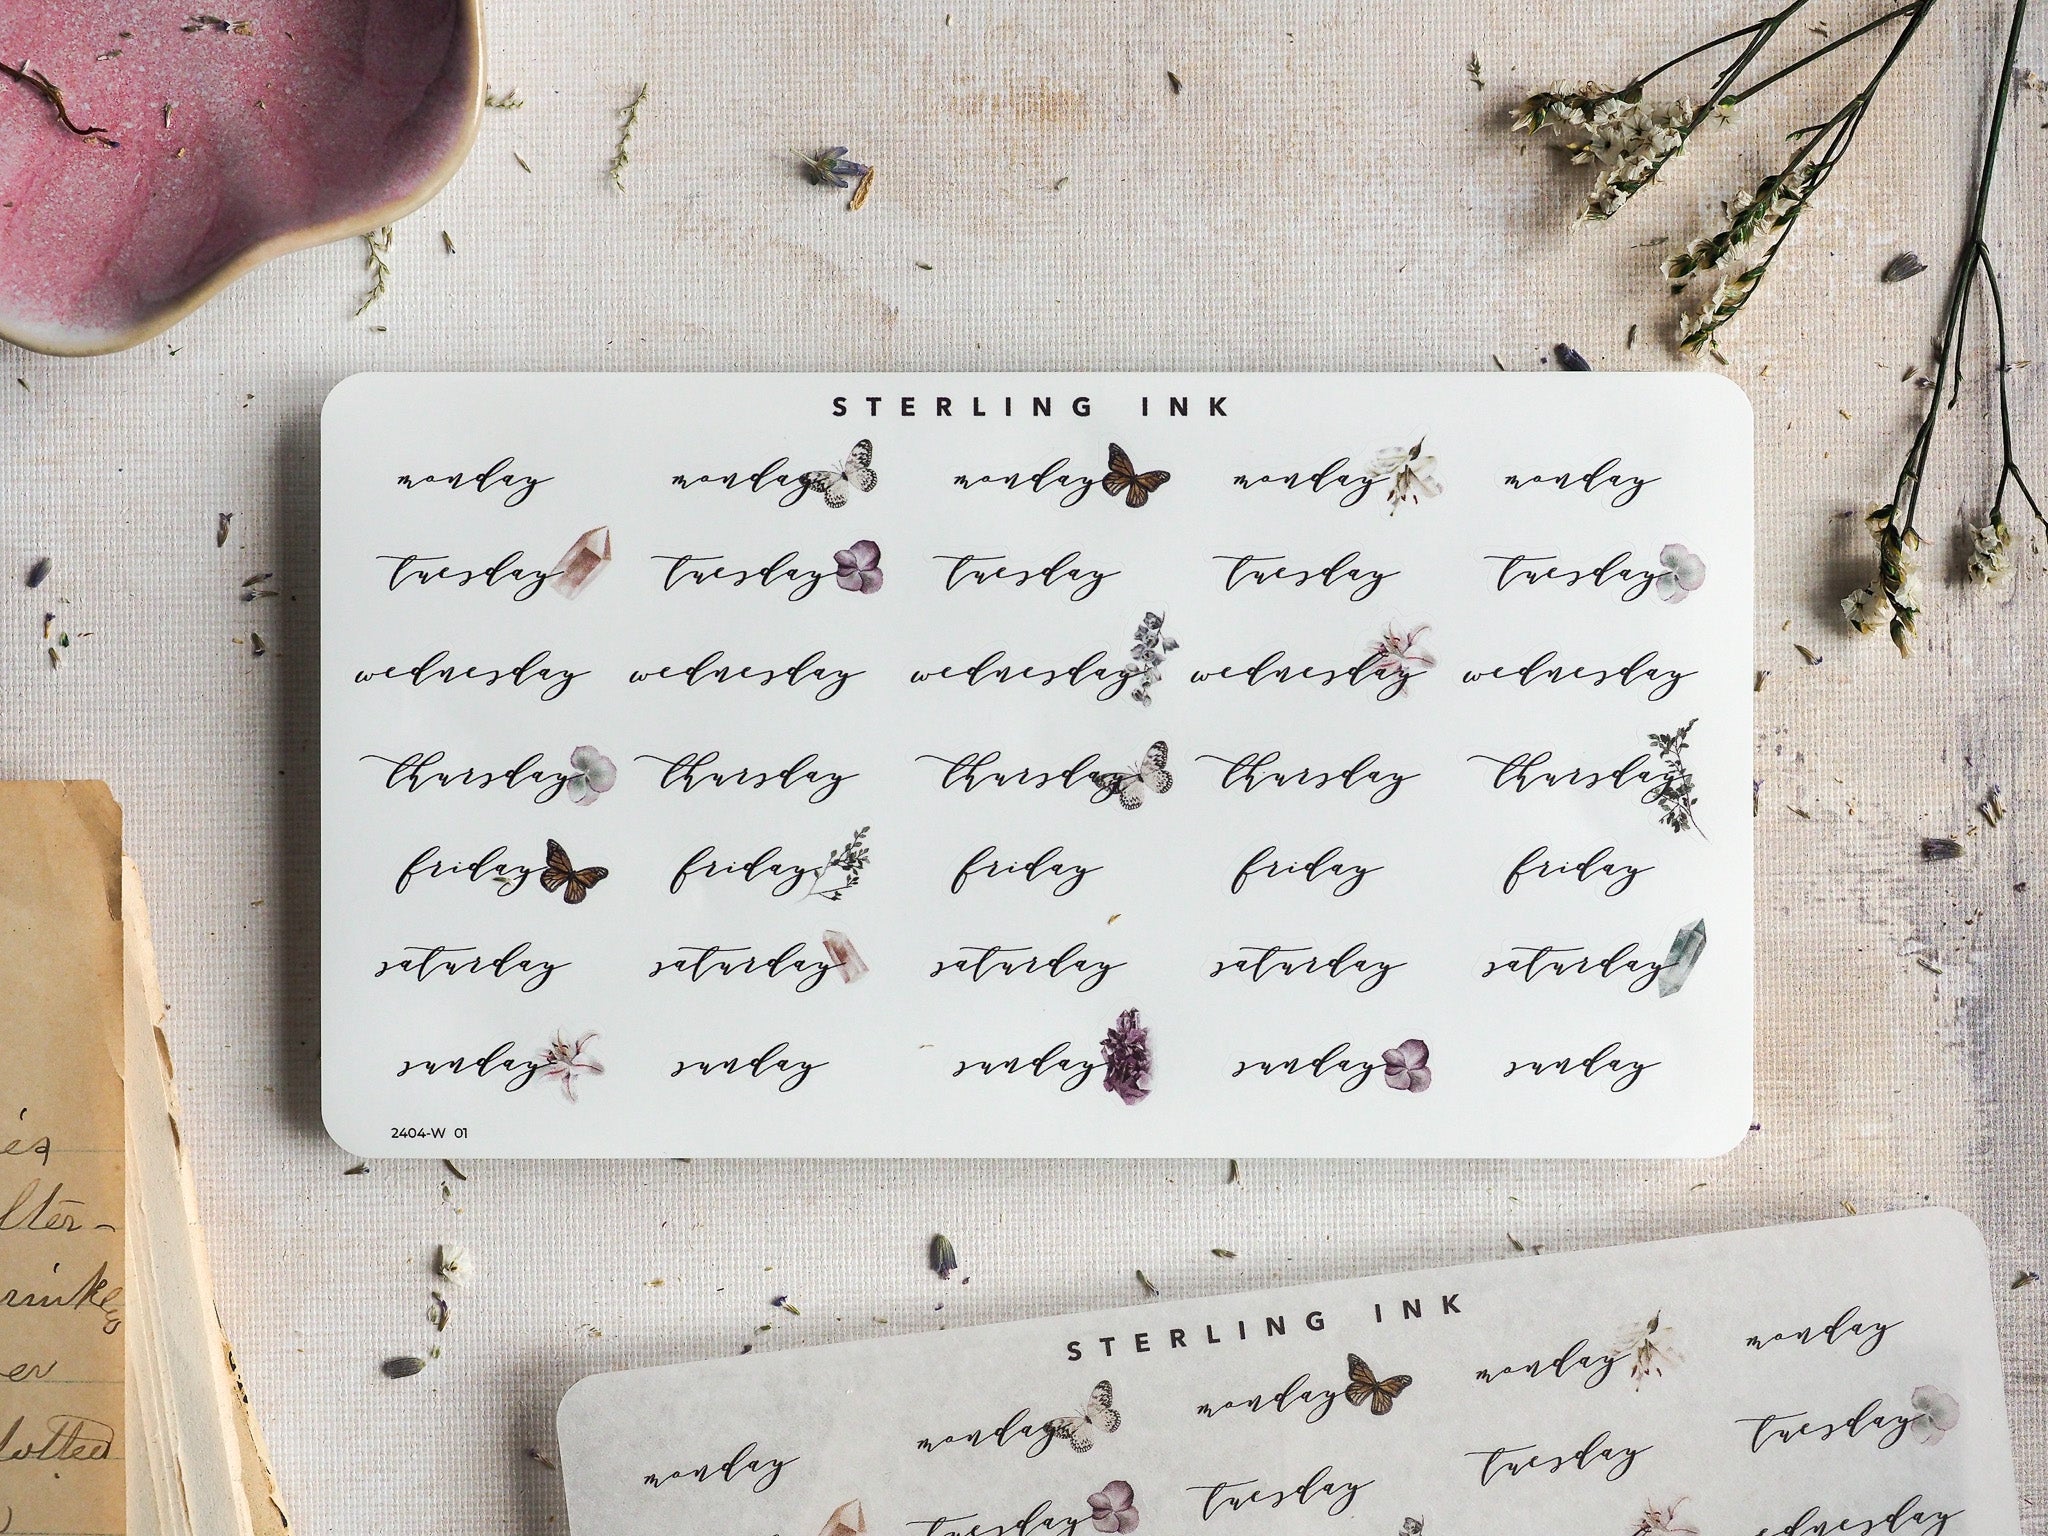 STERLING INK
monday monday monday monday monday
tuesday tuesday tuesday tuesday tuesday
wednesday wednesday wednesday wednesday wednesday
thursday thursday thursday thursday thursday
friday friday friday friday friday
saturday saturday saturday saturday saturday
sunday sunday sunday sunday sunday
2404-W 01
STERLING INK
monday monday monday monday monday
tuesday tuesday tuesday tuesday